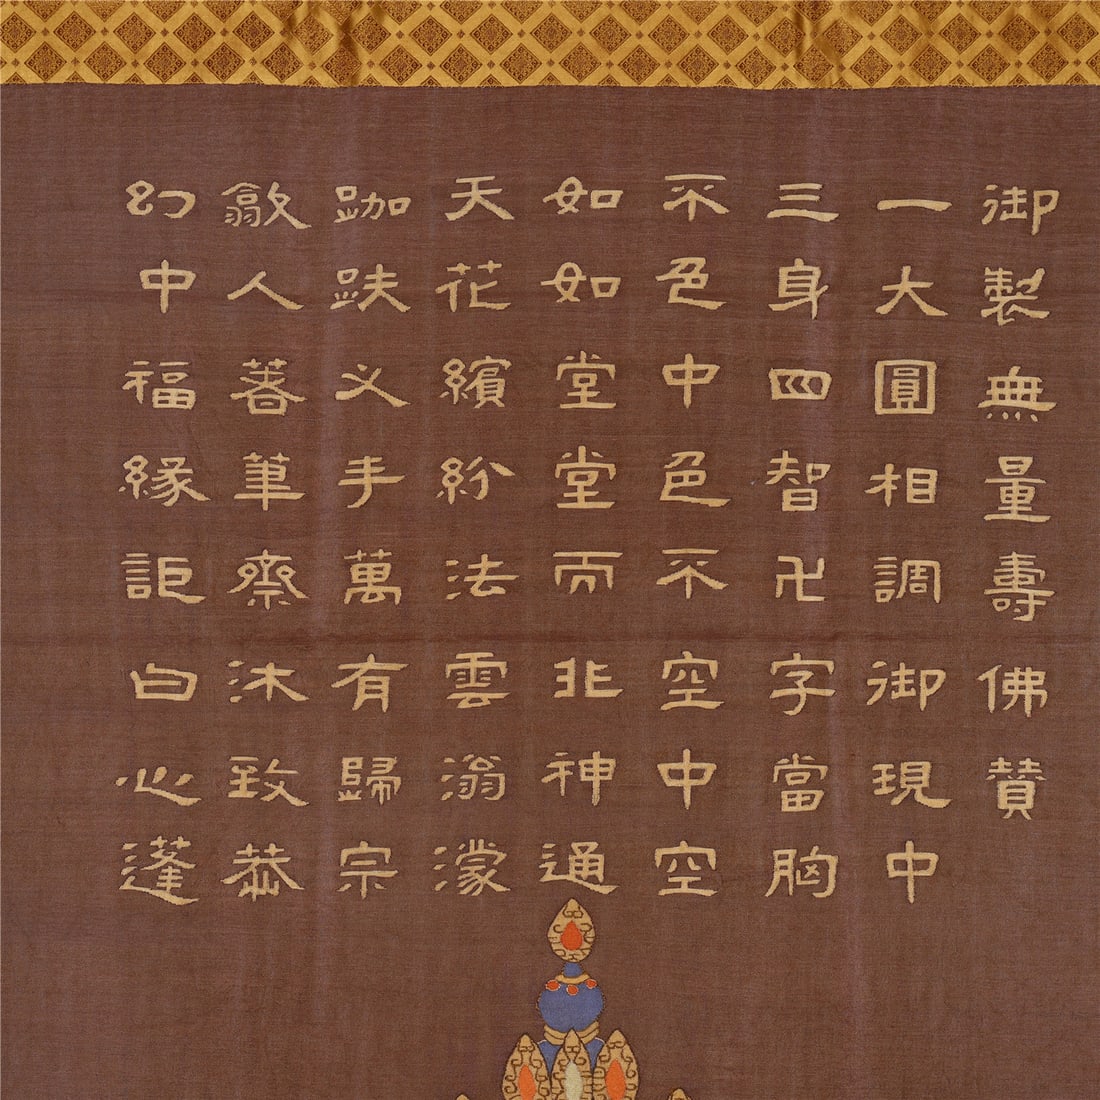 御製無量壽佛贊
一大圓相調御現中
三身四智卍字當胸
不色中色不空中空
如如堂堂而非神通
天花繽紛法雲滃濛
跏趺义手萬有歸宗
歙人善筆齋沐致恭
幻中福緣詎白心蓬